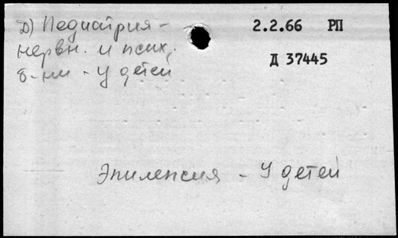 Д) Педиатрия -
нервн. и псих.
б-ни - у детей
2.2.66 РП
Д 37445
Эпилепсия - у детей